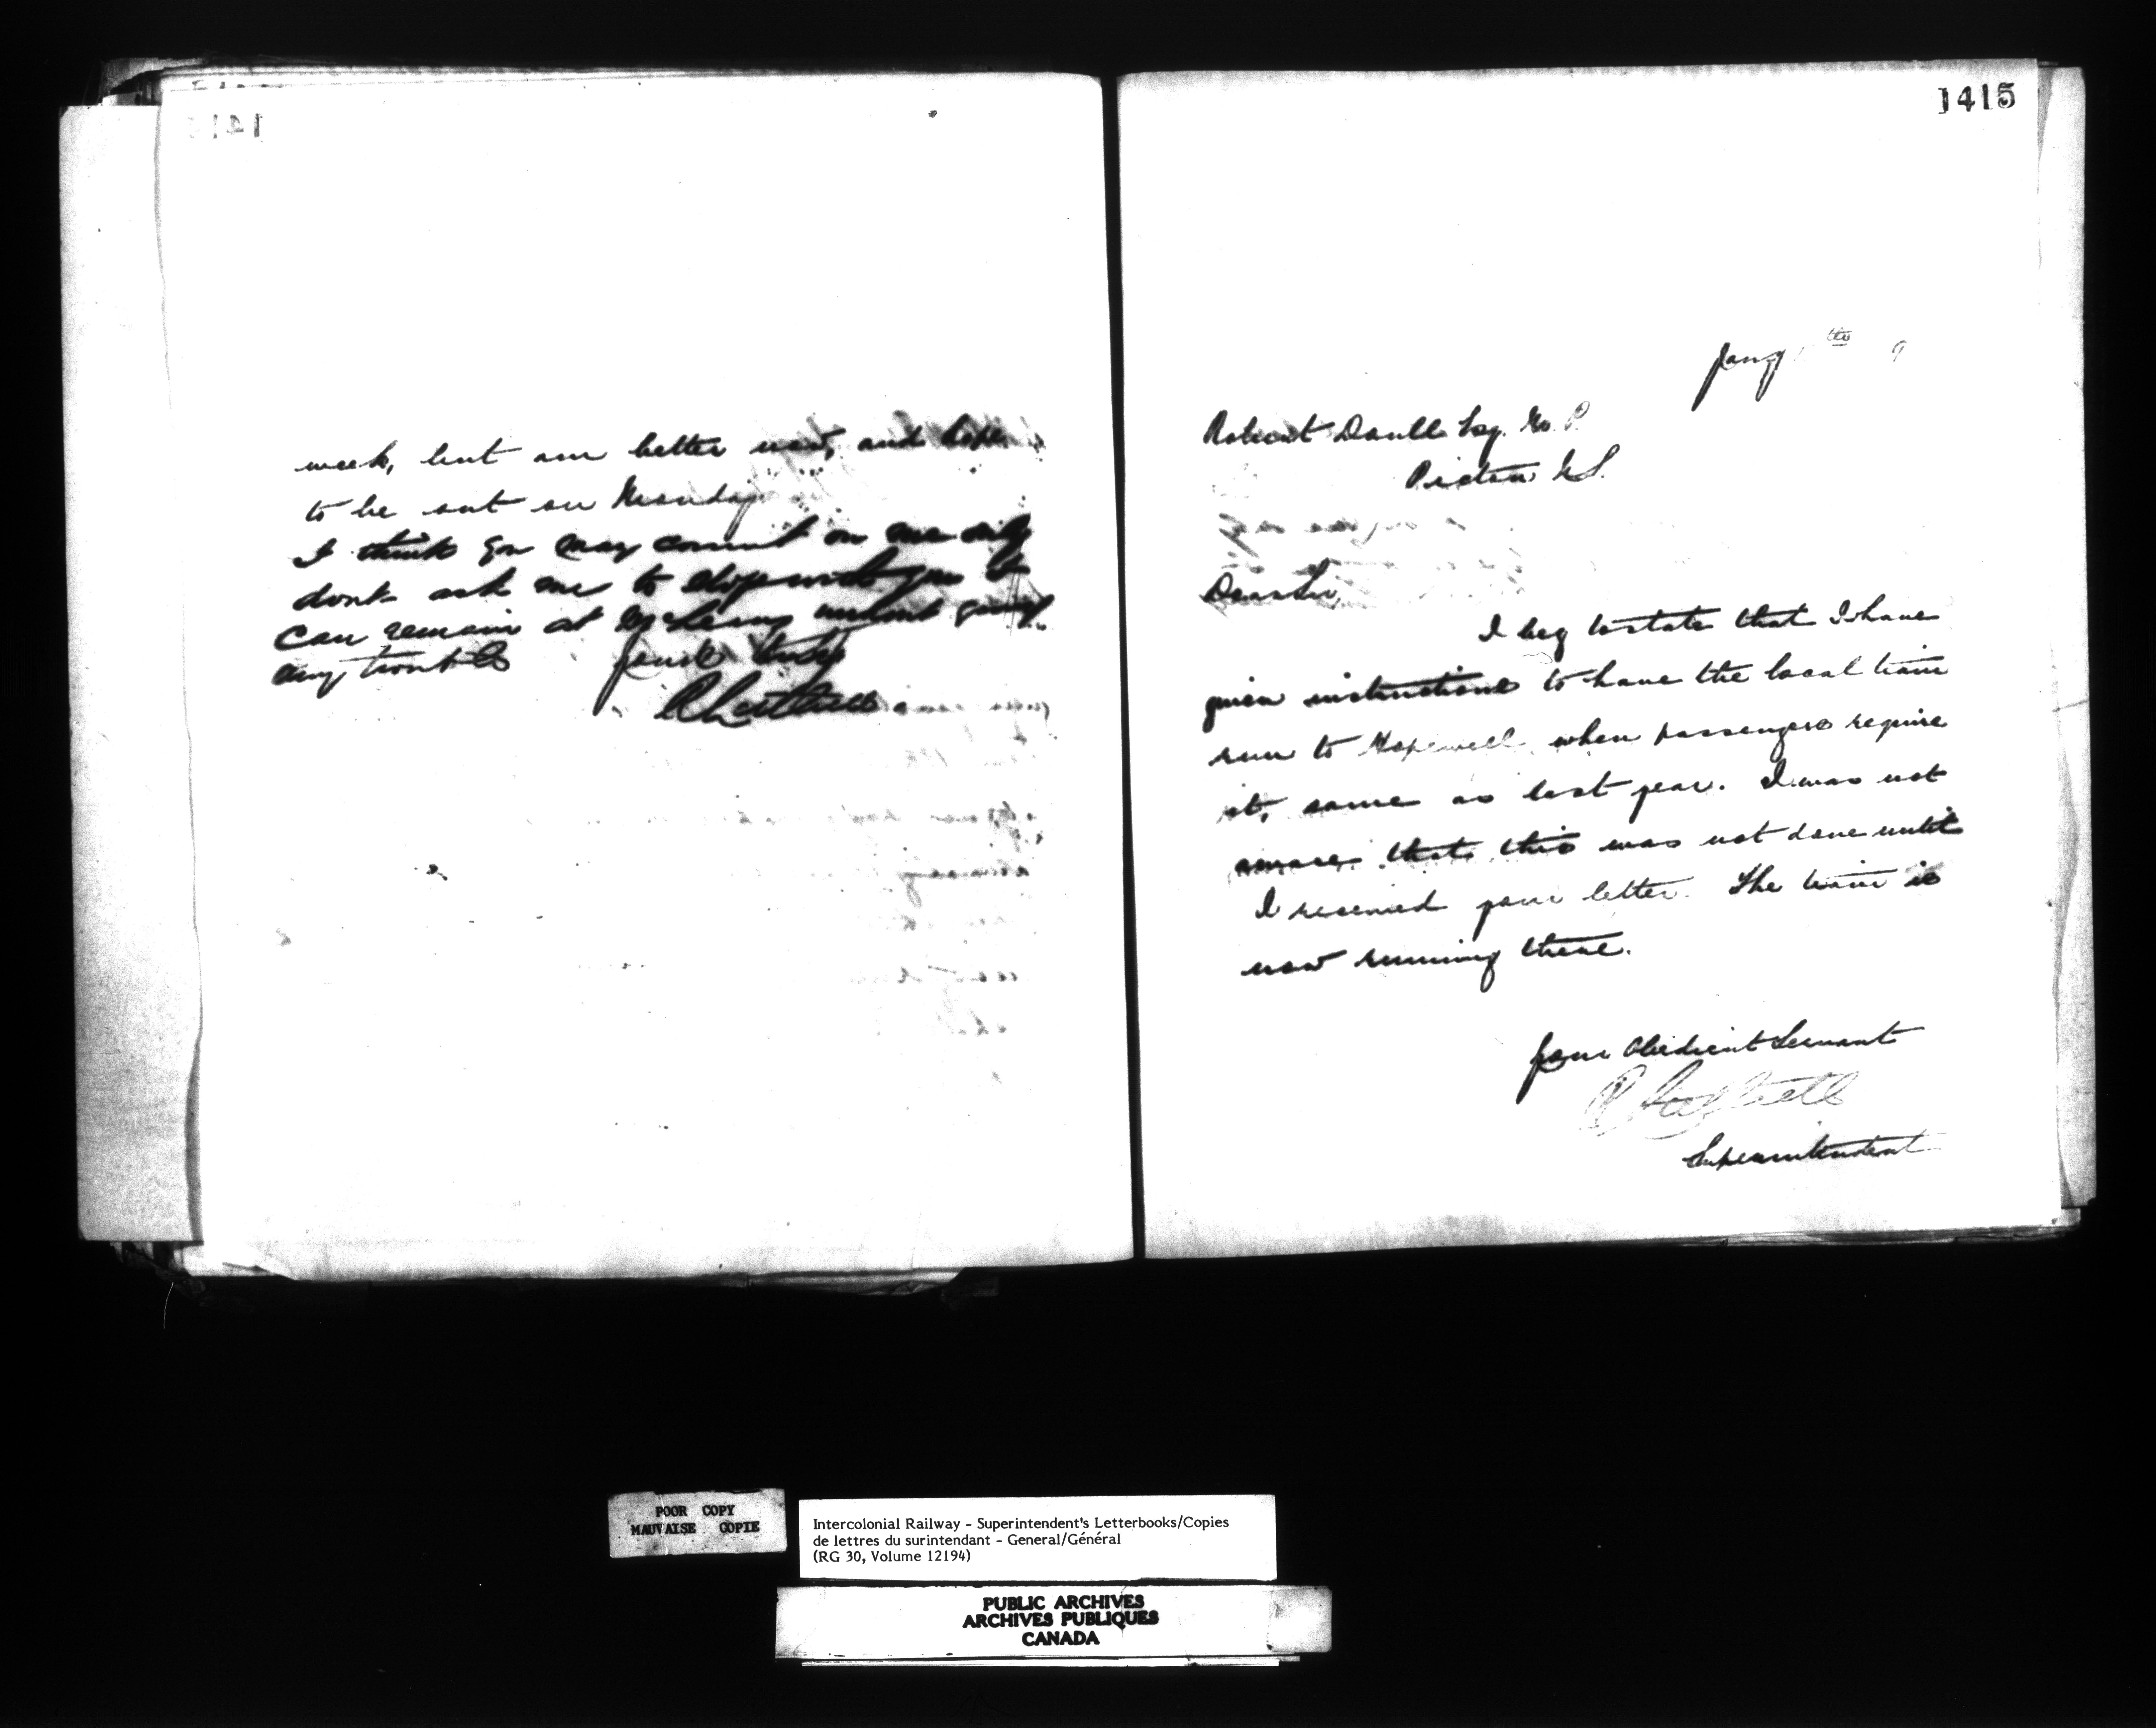 week, but am better now, and hope
to be out on Monday.
I think you may count on me only
dont ask me to stop with you I
can remain at without giving
any trouble Yours truly
R Luttrell
1415
Jany th 9
Robert Doull Esq. M. P.
Pictou N.S.
Dear Sir,
I beg to state that I have
given instructions to have the local train
run to Hopewell, when passengers require
it, same as last year. I was not
aware that this was not done until
I received your letter. The train is
now running there.
Your Obedient Servant
R Luttrell
Superintendent
POOR COPY
MAUVAISE COPIE
Intercolonial Railway - Superintendent's Letterbooks/Copies
de lettres du surintendant - General/Général
(RG 30, Volume 12194)
PUBLIC ARCHIVES
ARCHIVES PUBLIQUES
CANADA